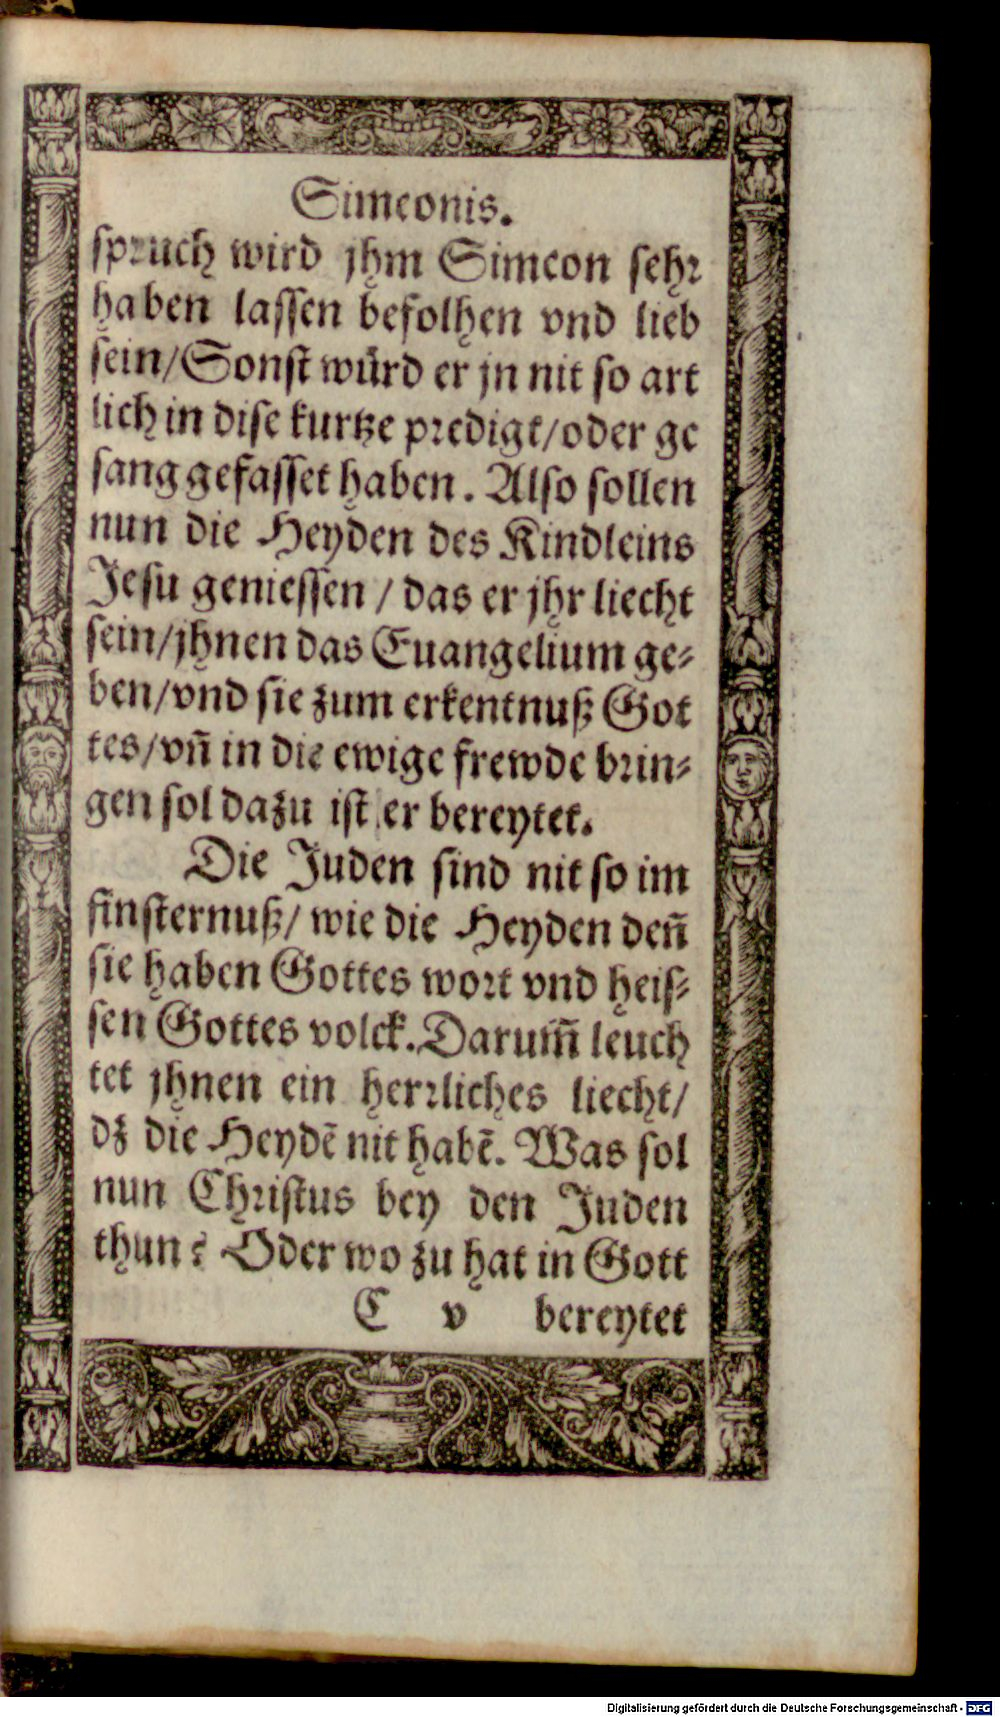 Simeonis.
spruch wird jhm Simeon sehr
haben lassen befolhen vnd lieb
sein/Sonst würd er jn nit so art
lich in dise kurtze predigt/oder ge
sang gefasset haben. Also sollen
nun die Heyden des Kindleins
Jesu geniessen / das er jhr liecht
sein/jhnen das Euangelium ge-
ben/vnd sie zum erkentnuß Got
tes/vñ in die ewige frewde brin-
gen sol dazu ist er bereytet.
Die Juden sind nit so im
finsternuß/ wie die Heyden deñ
sie haben Gottes wort vnd heis-
sen Gottes volck. Darum̃ leuch
tet jhnen ein herrliches liecht/
dz die Heydẽ nit habẽ. Was sol
nun Christus bey den Juden
thun? Oder wo zu hat in Gott
C v bereytet
Digitalisierung gefördert durch die Deutsche Forschungsgemeinschaft - DFG